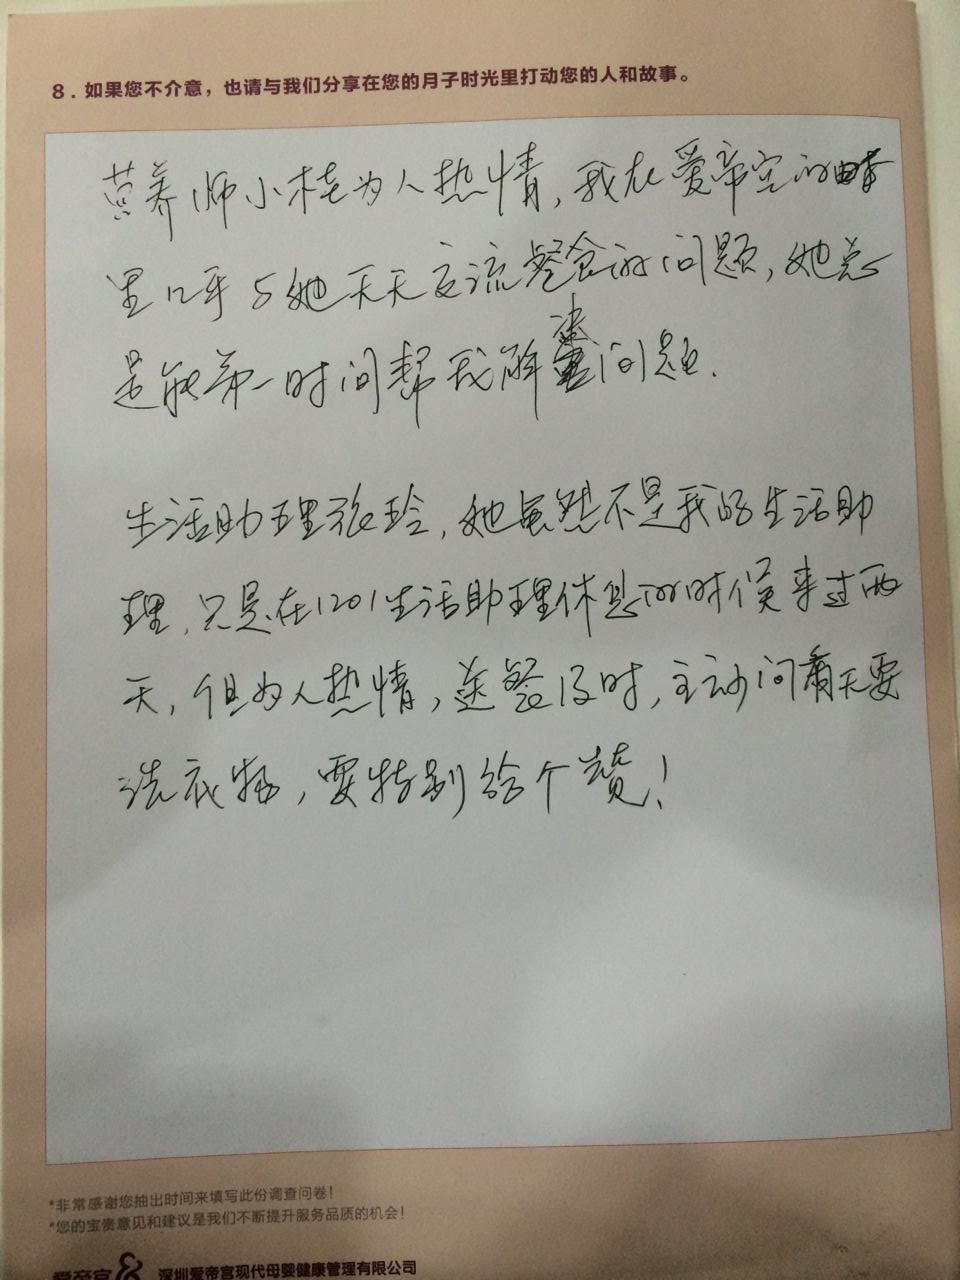 8. 如果您不介意，也请与我们分享在您的月子时光里打动您的人和故事。
营养师小桂为人热情，我在爱帝宫的
里几乎与她天天交流餐食的问题，她总
是能第一时间帮我解决问题.
生活助理张玲，她虽然不是我的生活助
理，只是在1201生活助理休息的时候来过两
天，但为人热情，送餐及时，主动问有无要
洗衣物，要特别给个赞！
*非常感谢您抽出时间来填写此份调查问卷！
*您的宝贵意见和建议是我们不断提升服务品质的机会！
爱帝宫 深圳爱帝宫现代母婴健康管理有限公司